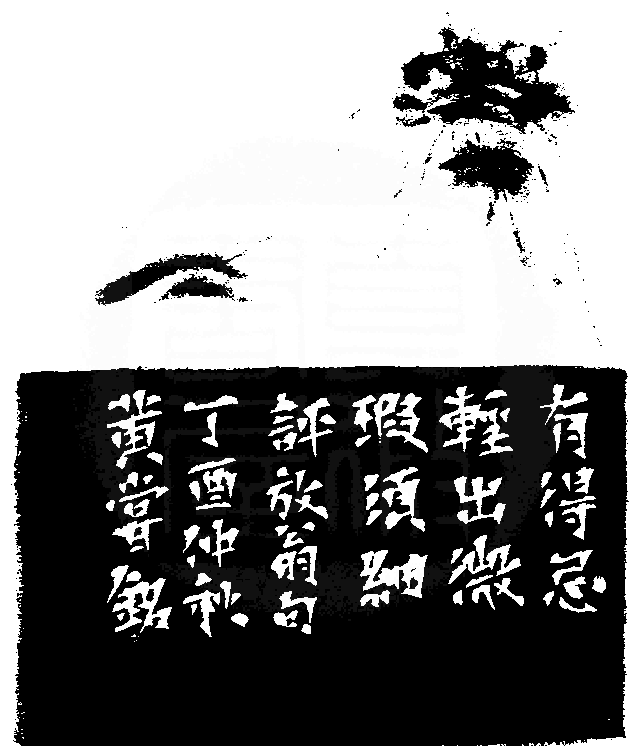 有得忌
輕出微
瑕須細
評放翁句
丁酉仲秋
黃嘗銘